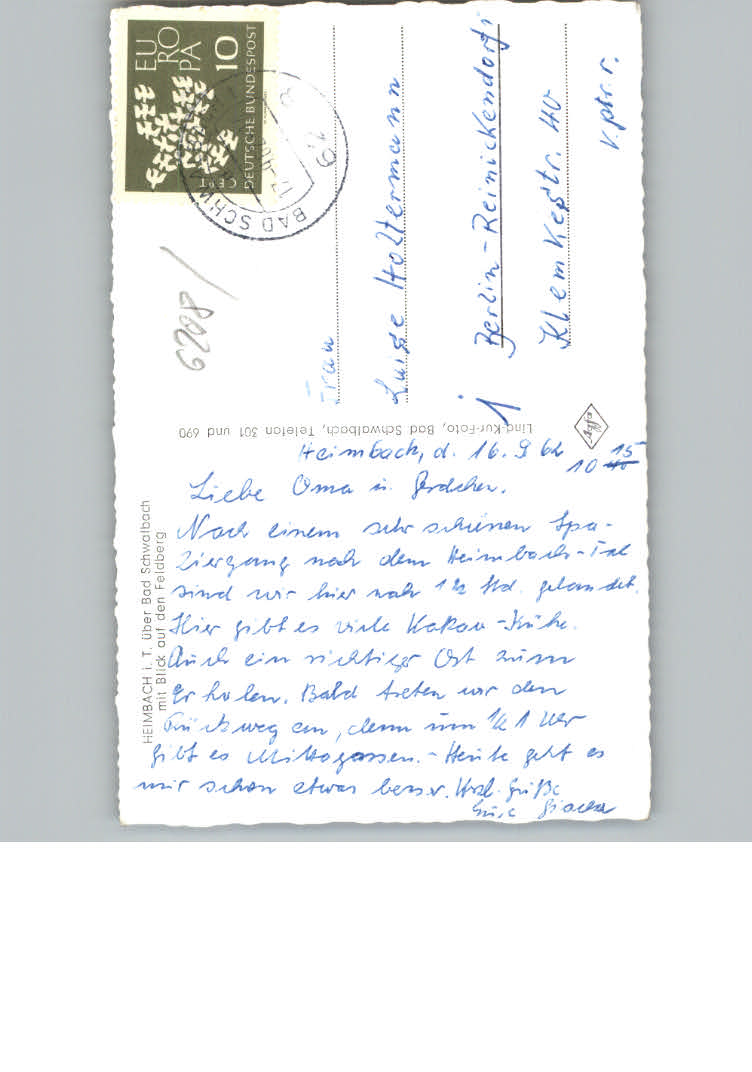 EUROPA
10
CEPT
DEUTSCHE BUNDESPOST
BAD SCHW
6208
Frau
Luise Holtermann
1 Berlin-Reinickendorf
Klemkestr. 40
v. ptr. r.
Lind-Kur-Foto, Bad Schwalbach, Telefon 301 und 690
Agfa
HEIMBACH i. T. über Bad Schwalbach
mit Blick auf den Feldberg
Heimbach, d. 16. 9 62
10 15
Liebe Oma u.
Nach einem sehr schönen Spa-
ziergang nach dem Heimbach-Tal
sind wir hier nach 1½ Std. gelandet.
Hier gibt es viele Kakao-Kühe.
Auch ein richtiger Ort zum
Erholen. Bald treten wir den
Rückweg an, denn um ½ 1 Uhr
gibt es Mittagessen. - Heute geht es
mir schon etwas besser. Herzl. Grüße
Eure